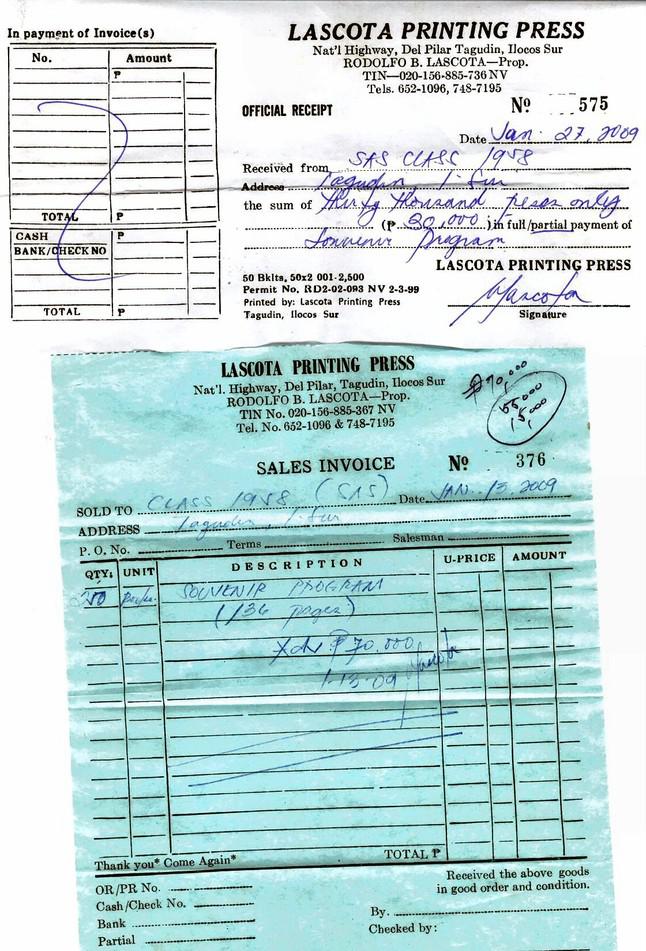 In payment of Invoice(s)
No. Amount
₱
TOTAL ₱
CASH ₱
BANK/CHECK NO
TOTAL ₱
LASCOTA PRINTING PRESS
Nat'l Highway, Del Pilar Tagudin, Ilocos Sur
RODOLFO B. LASCOTA—Prop.
TIN—020-156-885-736 NV
Tels. 652-1096, 748-7195
OFFICIAL RECEIPT Nº 575
Date Jan. 27, 2009
Received from SAS CLASS 1958
Address Tagudin, I. Sur
the sum of thirty thousand pesos only
(₱ 30,000) in full/partial payment of
Souvenir Program
LASCOTA PRINTING PRESS
50 Bklts, 50x2 001-2,500
Permit No. RD2-02-093 NV 2-3-99
Printed by: Lascota Printing Press
Tagudin, Ilocos Sur
Lascota
Signature
LASCOTA PRINTING PRESS
Nat'l. Highway, Del Pilar, Tagudin, Ilocos Sur
RODOLFO B. LASCOTA—Prop.
TIN No. 020-156-885-367 NV
Tel. No. 652-1096 & 748-7195
₱70,000
55,000
15,000
SALES INVOICE Nº 376
SOLD TO CLASS 1958 (SAS) Date JAN. 13, 2009
ADDRESS Tagudin, I. Sur
P. O. No. Terms Salesman
QTY. UNIT DESCRIPTION U-PRICE AMOUNT
SOUVENIR PROGRAM
(136 pages)
₱70,000
1-13-09 Lascota
Thank you* Come Again* TOTAL ₱
OR/PR No.
Cash/Check No.
Bank
Partial
Received the above goods
in good order and condition.
By.
Checked by: